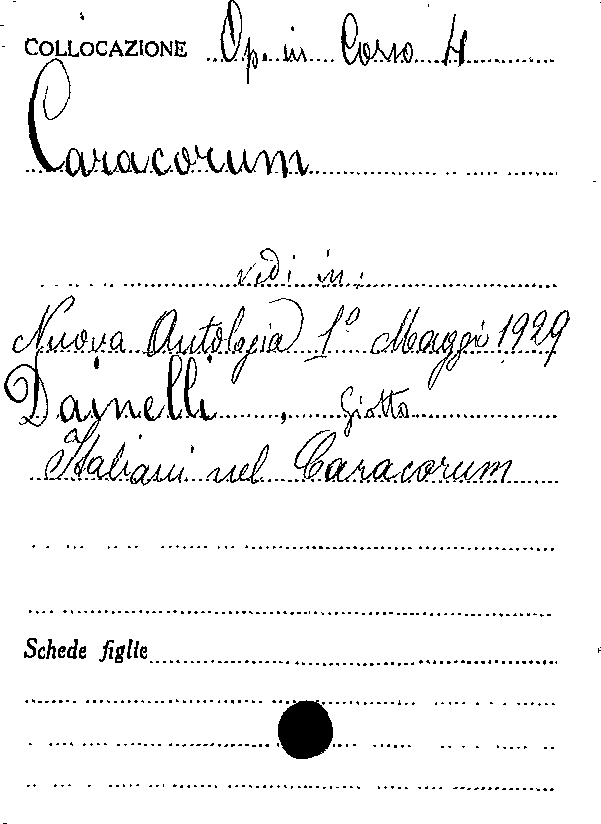 COLLOCAZIONE Op. in Corso 4
Caracorum
vedi in:
Nuova Antologia 1º Maggio 1929
Dainelli, Giotto
Italiani nel Caracorum
Schede figlie